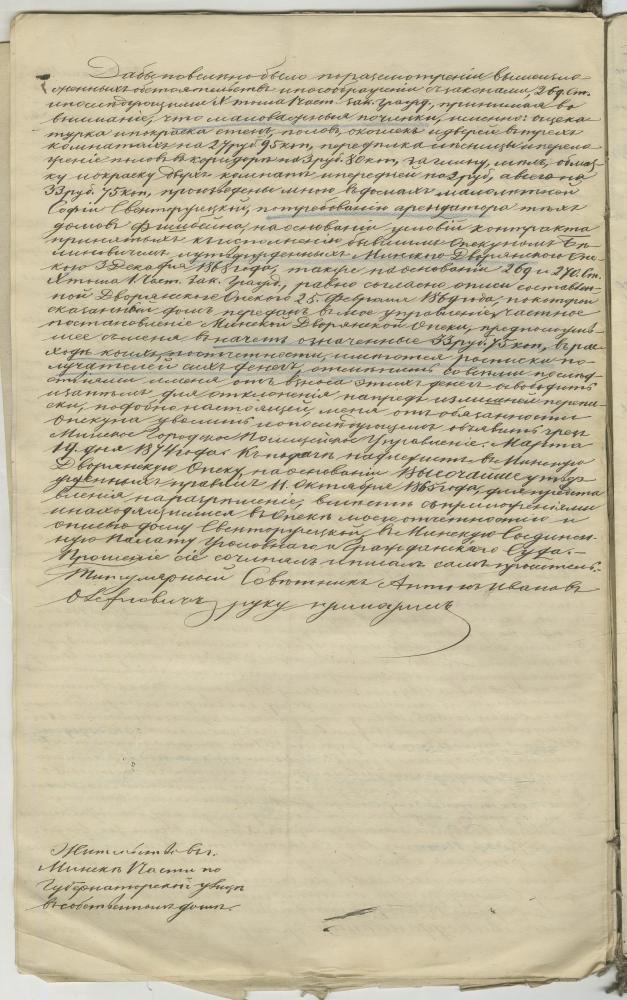 Дабы повелено было по разсмотреніи вышеизло-
женныхъ обстоятельствъ и по соображеніи съ законами, 269 Ст.
и последующими X тома 1 част. Зак. гражд., принимая во
вниманіе, что маловажныя починки, именно: ощека-
турка и покраска стенъ, половъ, окошекъ и дверей въ трехъ
комнатахъ на 27 руб 95 коп, передѣлка и
половъ въ коридорѣ на 3 руб. 80 коп, за глину,
ку и окраску двухъ комнатъ и передней по 2 руб, а всего на
33 руб. 75 коп, произведены мною въ домахъ малолетней
Софіи Свенторжецкой, по требованію арендатора тѣхъ
домовъ Фишбейна, на основаніи условій контракта
принятыхъ къ исполненію бывшимъ Опекуномъ
и утвержденныхъ Минскою Дворянскою Опе-
кою 3 Декабря 1868 года, также на основаніи 269 и 276 Ст.
X тома 1 Част. Зак. Гражд., равно согласно описи составлен-
ной Дворянскою Опекою 25 Февраля 1869 года, по которой
сказанный домъ переданъ въ мое управленіе, частное
постановленіе Минской Дворянской Опеки, предположив-
шее съ меня въ начетъ означенные 33 руб. 75 коп, въ рас-
ходѣ коихъ, по отчетности, имѣются росписки по-
лучателей сихъ денегъ, отмѣнить со всѣми послѣд-
ствіями меня отъ взноса этихъ денегъ освободить
и затѣмъ для отклоненія напредъ излишней перепи-
ски, подобно настоящей, меня отъ обязанности
Опекуна уволить и о послѣдующемъ объявить чрезъ
Минское Городское Полицейское Управленіе. Марта
19 дня 1874 года. Къ подачѣ надлежитъ въ Минскую
Дворянскую Опеку, на основаніи Высочайше утвер-
жденныхъ правилъ 11 Октября 1865 года, для представ-
вленія на разрѣшеніе, вмѣстѣ съ приложеніями
и находящимися въ Опекѣ моею отчетностію и
описью дому Свенторжецкой, въ Минскую Соединен-
ную Палату Уголовнаго и Гражданскаго Суда.-
Прошеніе сіе сочинялъ и писалъ самъ проситель.
Титулярный Совѣтникъ Антонъ Ивановъ
руку приложилъ
Жительство въ г.
Минскѣ Части по
Губернаторской улицѣ
въ собственномъ домѣ.